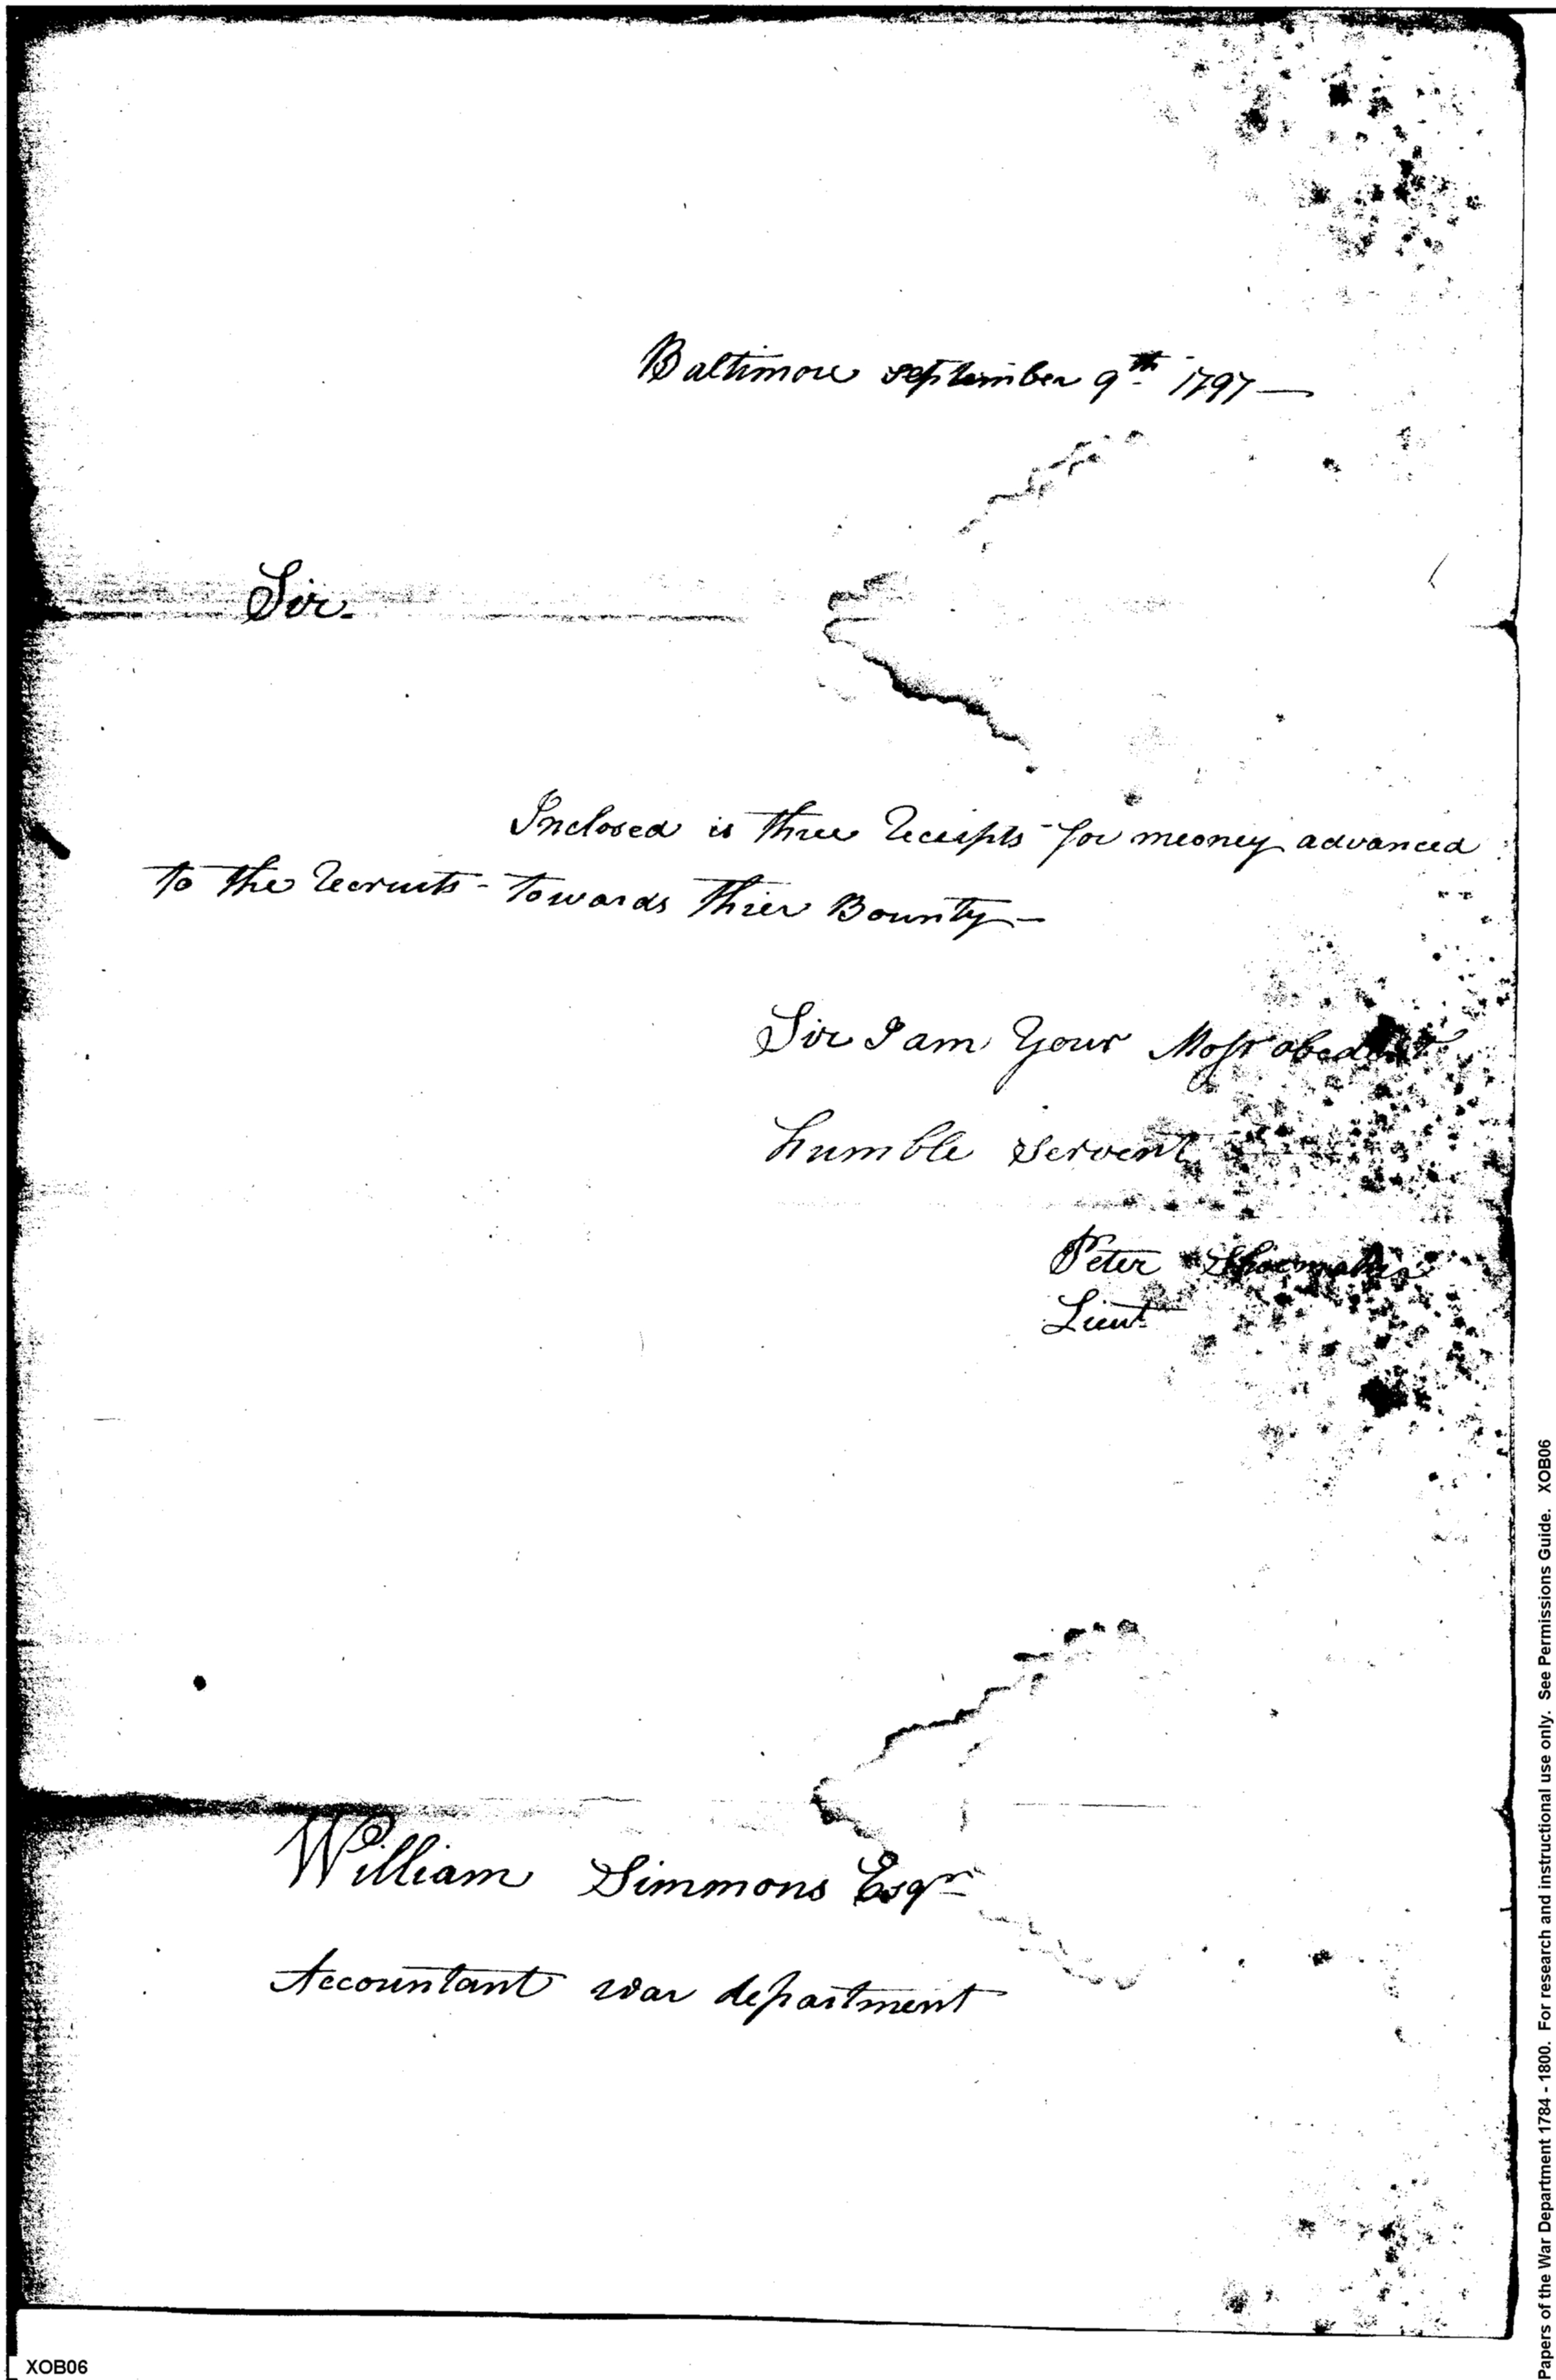 Baltimore september 9th 1797 —
Sir.
Inclosed is three Receipts for meoney advanced
to the Recruits - towards thier Bounty —
Sir I am Your Most obedent
humble servent
Peter Shoemaker
Lieut
William Simmons Esqr
Accountant war department
XOB06
Papers of the War Department 1784 - 1800. For research and instructional use only. See Permissions Guide. XOB06